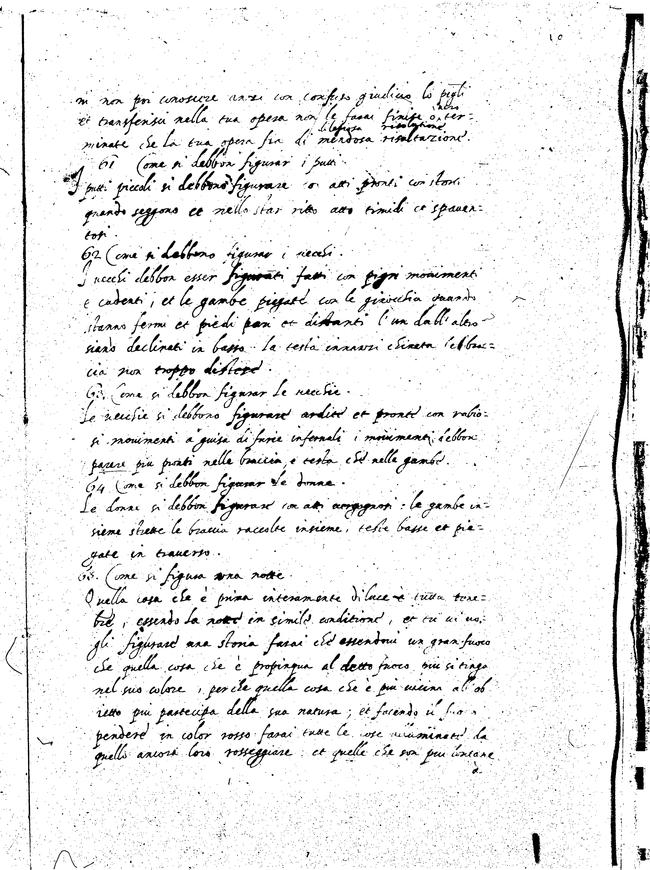 10
ni non poi conoscere anzi con confuso giudicio lo pigli
et transferisci nella tua opera non le farai finite o vero ter=
minate che la tua opera sia di mendosa
61 Come si debbon figurar i putti
I putti piccoli si debbono figurare con atti pronti con storti
quando seggono et nello star ritto atto timidi et spaven=
tosi.
62 Come si debbono figurar i vecchi.
I vecchi debbon esser figurati fatti con pigri movimenti
e cadenti; et le gambe piegate con le ginocchia quando
stanno fermi et piedi pari et distanti l'un dall'altro
siano declinati in basso. la testa innanzi chinata le brac=
cia non troppo distese.
63. Come si debbon figurar le vecchie.
Le vecchie si debbono figurare ardite et pronte con rabio=
si movimenti a guisa di furie infernali i movimenti debbon
parere piu pronti nelle braccia, e testa che nelle gambe.
64 Come si debbon figurar le donne.
Le donne si debbon figurare con atti vergognosi: le gambe in=
sieme strette le braccia raccolte insieme, teste basse et pie=
gate in traverso.
65. Come si figura una notte
Quella cosa che è priva interamente di luce è tutta tene=
bre, essendo la notte in simile conditione, et tu vi vo=
gli figurare una storia farai che essendovi un gran fuoco
che quella cosa che è propinqua al detto fuoco piu si tinga
nel suo colore, perche quella cosa che è piu vicina all'ob
ietto piu partecipa della sua natura; et facendo il fuoco
pendere in color rosso farai tutte le cose alluminate da
quello ancora loro rosseggiare: et quelle che son piu lontane
à